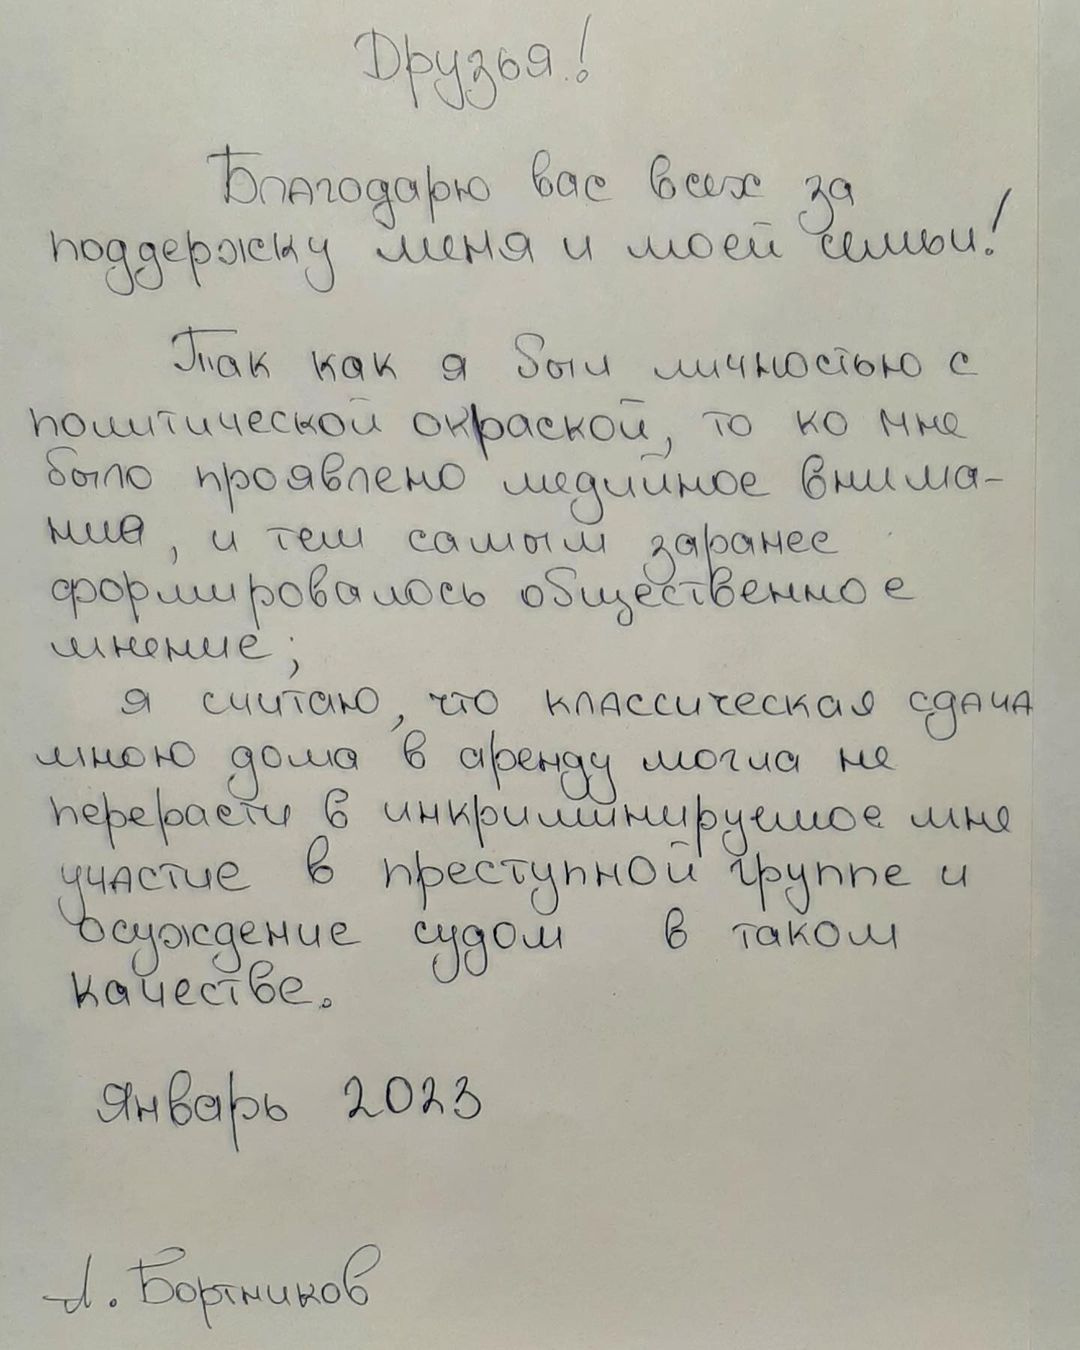 Друзья!
Благодарю вас всех за
поддержку меня и моей семьи!
Так как я был личностью с
политической окраской, то ко мне
было проявлено медийное внима-
ние, и тем самым заранее
формировалось общественное
мнение;
я считаю, что классическая сдача
мною дома в аренду могла не
перерасти в инкриминируемое мне
участие в преступной группе и
осуждение судом в таком
качестве.
Январь 2023
А. Бортников